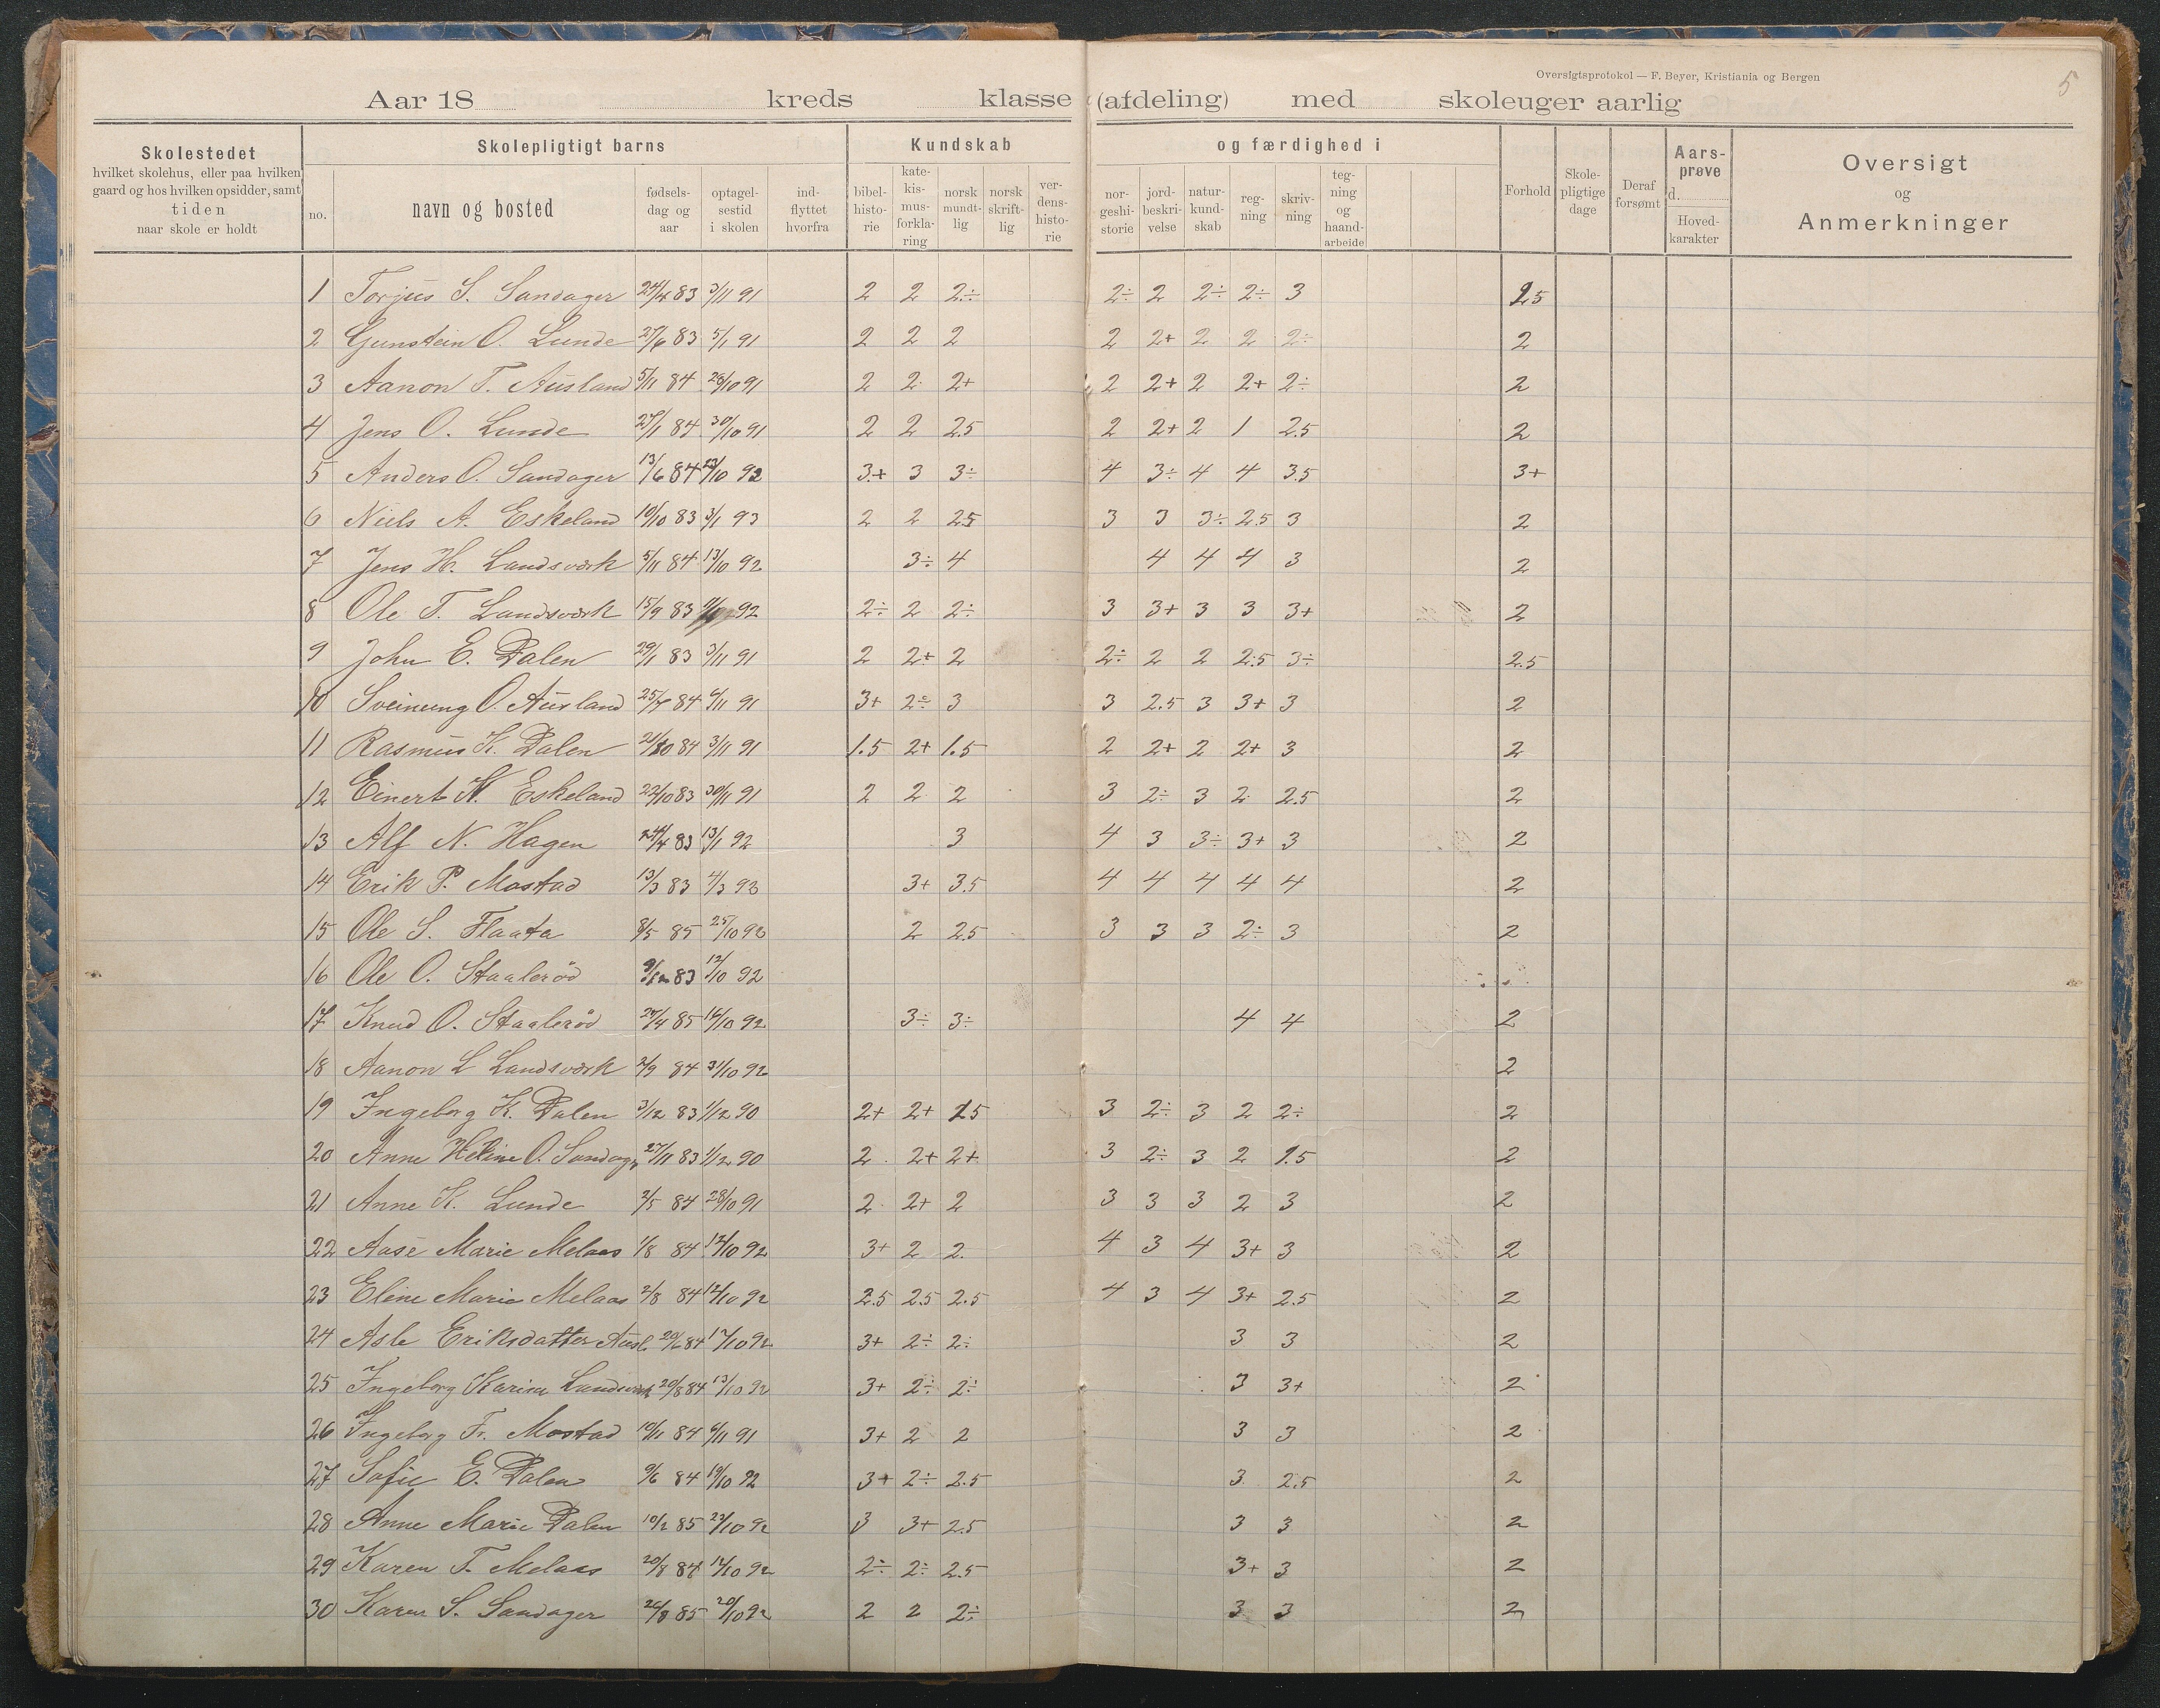 Oversigtsprotokol — F. Beyer, Kristiania og Bergen
5
Aar 18 kreds klasse (afdeling) med skoleuger aarlig
Skolestedet
hvilket skolehus, eller paa hvilken
gaard og hos hvilken opsidder, samt
tiden
naar skole er holdt
Skolepligtigt barns
no.
navn og bosted
fødsels-
dag og
aar
optagel-
sestid
i skolen
ind-
flyttet
hvorfra
Kundskab
bibel-
histo-
rie
kate-
kis-
mus-
forkla-
ring
norsk
mundt-
lig
norsk
skrift-
lig
ver-
dens-
histo-
rie
og færdighed i
nor-
geshi-
storie
jord-
beskri-
velse
natur-
kund-
skab
reg-
ning
skriv-
ning
teg-
ning
og
haand-
arbeide
Forhold
Skole-
pligtige
dage
Deraf
forsømt
Aars-
prøve
d.
Hoved-
karakter
Oversigt
og
Anmerkninger
1 Torjus S. Sandager 24/4 83 3/11 91 2 2 2÷ 2÷ 2 2÷ 2÷ 3 2.5
2 Gunstein O. Lunde 27/6 83 5/1 91 2 2 2 2 2+ 2 2 2÷ 2
3 Aanon T. Ausland 5/11 84 28/10 91 2 2 2+ 2 2+ 2 2+ 2÷ 2
4 Jens O. Lunde 27/1 84 30/10 91 2 2 2.5 2 2+ 2 1 2.5 2
5 Anders O. Sandager 13/6 84 /10 92 3+ 3 3÷ 4 3÷ 4 4 3.5 3+
6 Niels A. Eskeland 10/10 83 3/1 93 2 2 2.5 3 3 3÷ 2.5 3 2
7 Jens H. Landsværk 5/11 84 13/10 92 3÷ 4 4 4 4 3 2
8 Ole T. Landsværk 15/9 83 92 2÷ 2 2÷ 3 3+ 3 3 3+ 2
9 John E. Dalen 29/1 83 3/11 91 2 2+ 2 2÷ 2 2 2.5 3÷ 2.5
10 Sveinung O. Ausland 25/7 84 6/11 91 3+ 2÷ 3 3 2.5 3 3+ 3 2
11 Rasmus K. Dalen 21/10 84 3/11 91 1.5 2+ 1.5 2 2+ 2 2+ 3 2
12 Einert N. Eskeland 22/10 83 30/11 91 2 2 2 3 2÷ 3 2 2.5 2
13 Alf N. Hagen 24/4 83 13/1 92 3 4 3 3÷ 3+ 3 2
14 Erik P. Mostad 13/3 83 4/3 93 3+ 3.5 4 4 4 4 4 2
15 Ole S. Flaata 8/5 85 25/10 92 2 2.5 3 3 3 2÷ 3 2
16 Ole O. Staalerød 83 12/10 92
17 Knud O. Staalerød 24/4 85 14/10 92 3÷ 3÷ 4 4 2
18 Aanon L Landsværk 2/9 84 31/10 92 2
19 Ingeborg K. Dalen 3/12 83 1/12 90 2+ 2+ 1.5 3 2÷ 3 2 2÷ 2
20 Anne Heline O. Sandager 27/11 83 1/12 90 2 2+ 2+ 3 2÷ 3 2 1.5 2
21 Anne K. Lunde 2/5 84 28/10 91 2 2+ 2 3 3 3 2 3 2
22 Aase Marie Melaas 1/8 84 12/10 92 3+ 2 2 4 3 4 3+ 3 2
23 Eline Marie Melaas 2/8 84 12/10 92 2.5 2.5 2.5 4 3 4 3+ 2.5 2
24 Asle Eriksdatter Ausl. 20/6 84 17/10 92 3+ 2÷ 2÷ 3 3 2
25 Ingeborg Karine Landsværk 20/8 84 13/10 92 3+ 2÷ 2÷ 3 3+ 2
26 Ingeborg Fr. Mostad 10/11 84 6/11 91 3+ 2 2 3 3 2
27 Sofie E. Dalen 9/6 84 19/10 92 3+ 2÷ 2.5 3 2.5 2
28 Anne Marie Dalen 10/2 85 23/10 92 3 3+ 2.5 3 3 2
29 Karen T. Melaas 20/8 84 12/10 92 2÷ 2÷ 2.5 3+ 3 2
30 Karen S. Sandager 26/8 85 20/10 92 2 2 2÷ 3 3 2